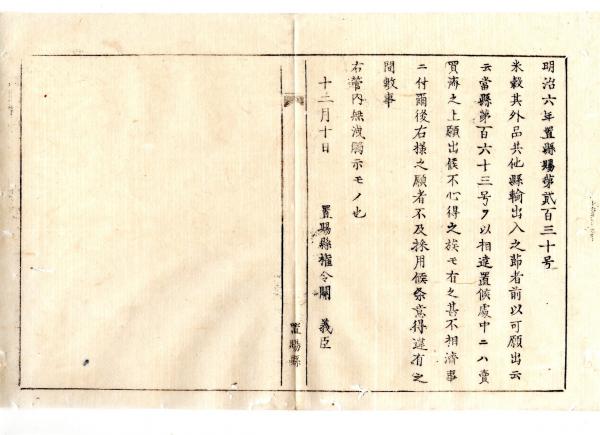 明治六年置縣賜第貳百三十号
米穀其外品共他縣輸出入之節者前以可願出云
云當縣第百六十三号ヲ以相達置候處中ニハ賣
買済之上願出候不心得之族モ有之甚不相濟事
ニ付爾後右様之願者不及採用候条意得違有之
間敷事
右管内無洩觸示モノ也
十二月十日
置賜縣權令關 義臣
置賜縣